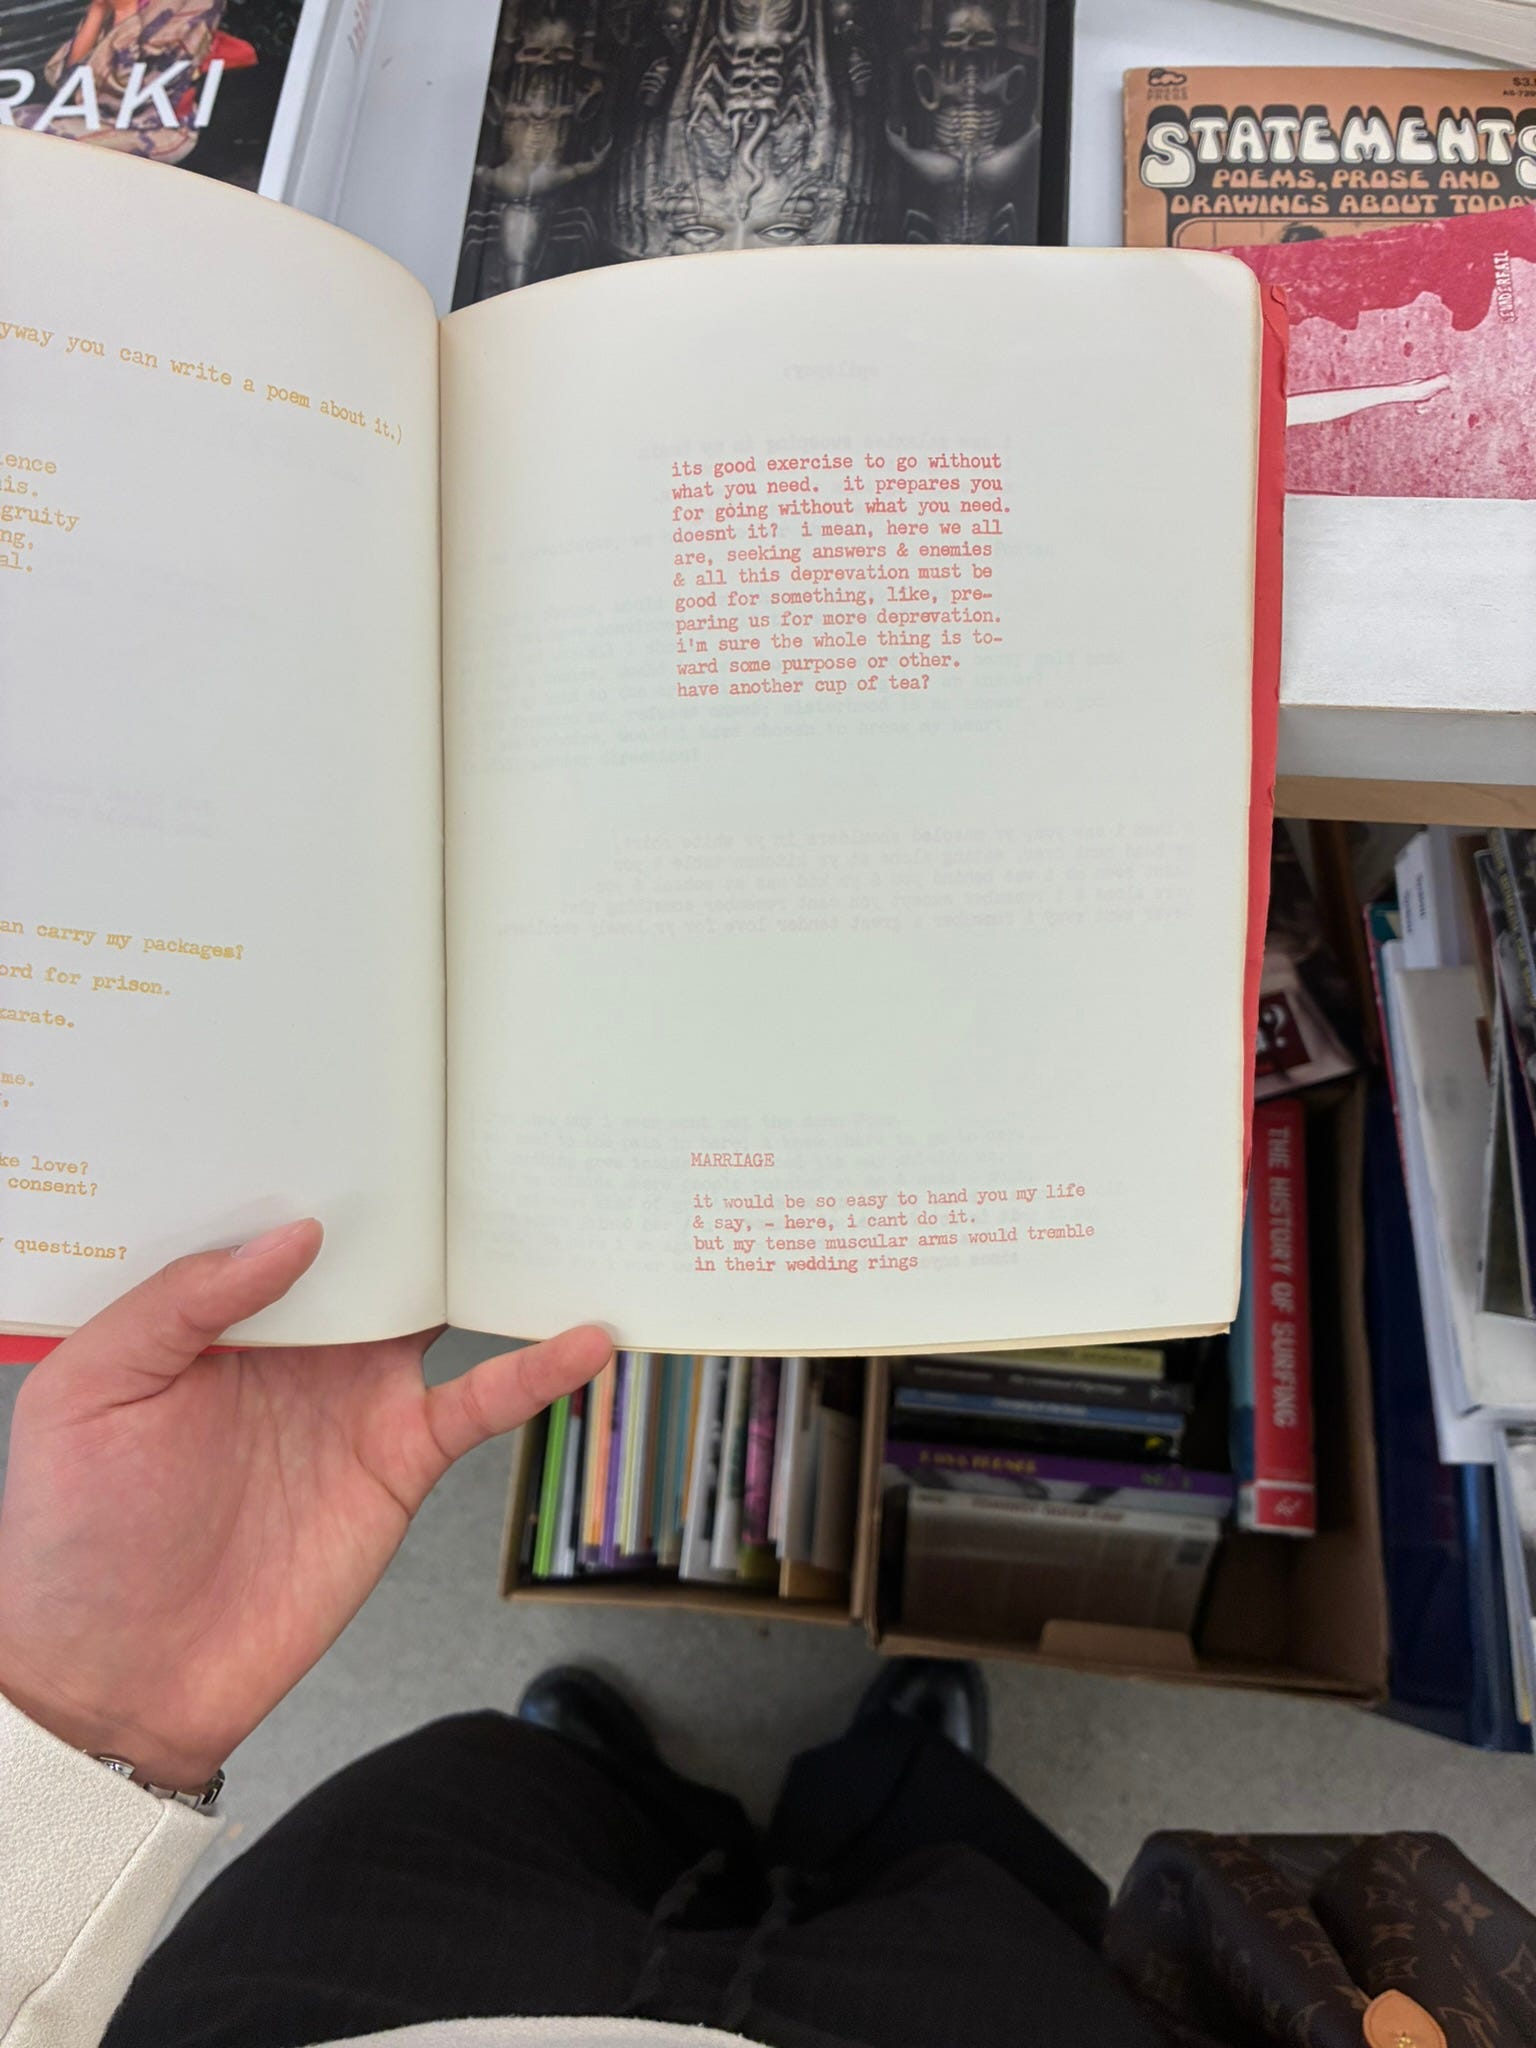 RAKI
STATEMENTS
POEMS, PROSE AND
DRAWINGS ABOUT TODAY
yway you can write a poem about it.)
ience
is.
gruity
ng,
al.
an carry my packages?
ord for prison.
karate.
me.
ke love?
consent?
questions?
its good exercise to go without
what you need.  it prepares you
for going without what you need.
doesnt it?  i mean, here we all
are, seeking answers & enemies
& all this deprevation must be
good for something, like, pre-
paring us for more deprevation.
i'm sure the whole thing is to-
ward some purpose or other.
have another cup of tea?
MARRIAGE
it would be so easy to hand you my life
& say, - here, i cant do it.
but my tense muscular arms would tremble
in their wedding rings
THE HISTORY OF SURFING